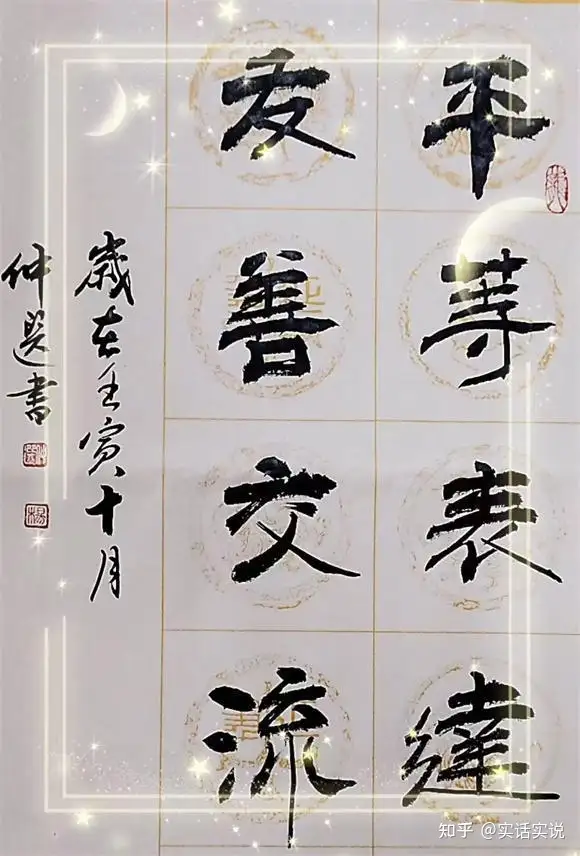 平等表達
友善交流
歲在壬寅十月
仲選書
知乎 @实话实说